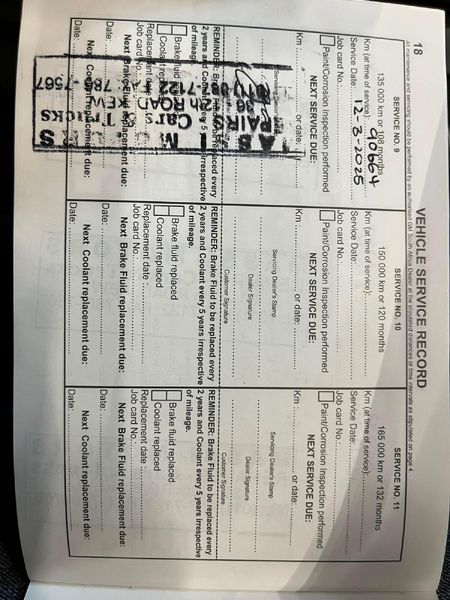 18
VEHICLE SERVICE RECORD
All maintenance and servicing should be performed by an authorised GM South Africa Dealer at the stipulated distances or time intervals as stipulated on page 4
SERVICE NO. 9
135 000 km or 108 months
Km (at time of service): 90664
Service Date: 12-3-2025
Job card No.
Paint/Corrosion Inspection performed
NEXT SERVICE DUE:
Km or date:
REMINDER: Brake Fluid to be replaced every
2 years and Coolant every 5 years irrespective
of mileage.
Brake fluid replaced
Replacement date
Job card No.
Next Brake Fluid replacement due:
Date:
Next Coolant replacement due:
Date:
SERVICE NO. 10
150 000 km or 120 months
Km (at time of service):
Service Date:
Job card No.
Paint/Corrosion Inspection performed
NEXT SERVICE DUE:
Km or date:
Servicing Dealer's Stamp
Dealer Signature
Customer Signature
REMINDER: Brake Fluid to be replaced every
2 years and Coolant every 5 years irrespective
of mileage.
Brake fluid replaced
Coolant replaced
Replacement date
Job card No.
Next Brake Fluid replacement due:
Date:
Next Coolant replacement due:
Date:
SERVICE NO. 11
165 000 km or 132 months
Km (at time of service):
Service Date:
Job card No.
Paint/Corrosion Inspection performed
NEXT SERVICE DUE:
Km or date:
Servicing Dealer's Stamp
Dealer Signature
Customer Signature
REMINDER: Brake Fluid to be replaced every
2 years and Coolant every 5 years irrespective
of mileage.
Brake fluid replaced
Coolant replaced
Replacement date
Job card No.
Next Brake Fluid replacement due:
Date:
Next Coolant replacement due:
Date: